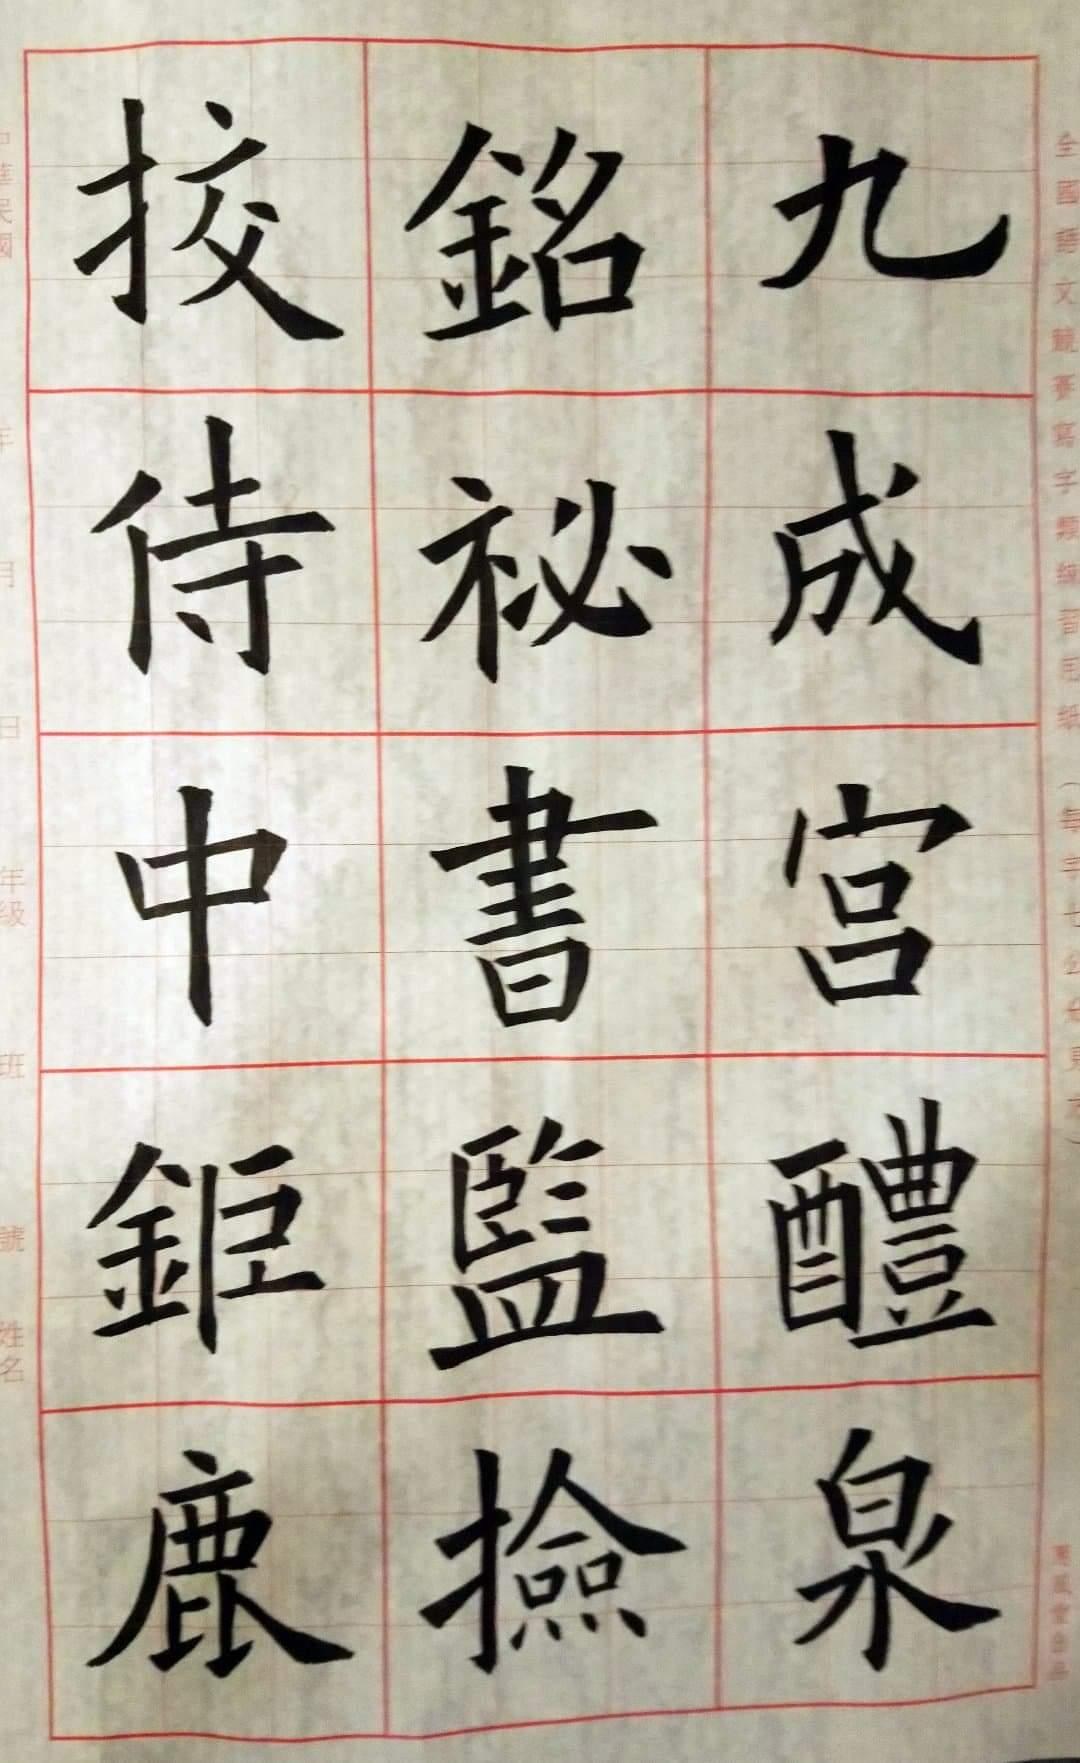 全國語文競賽寫字類練習用紙（每字七公分見方）
九成宮醴泉
銘祕書監撿
挍侍中鉅鹿
中華民國 年 月 日 年級 班 號 姓名